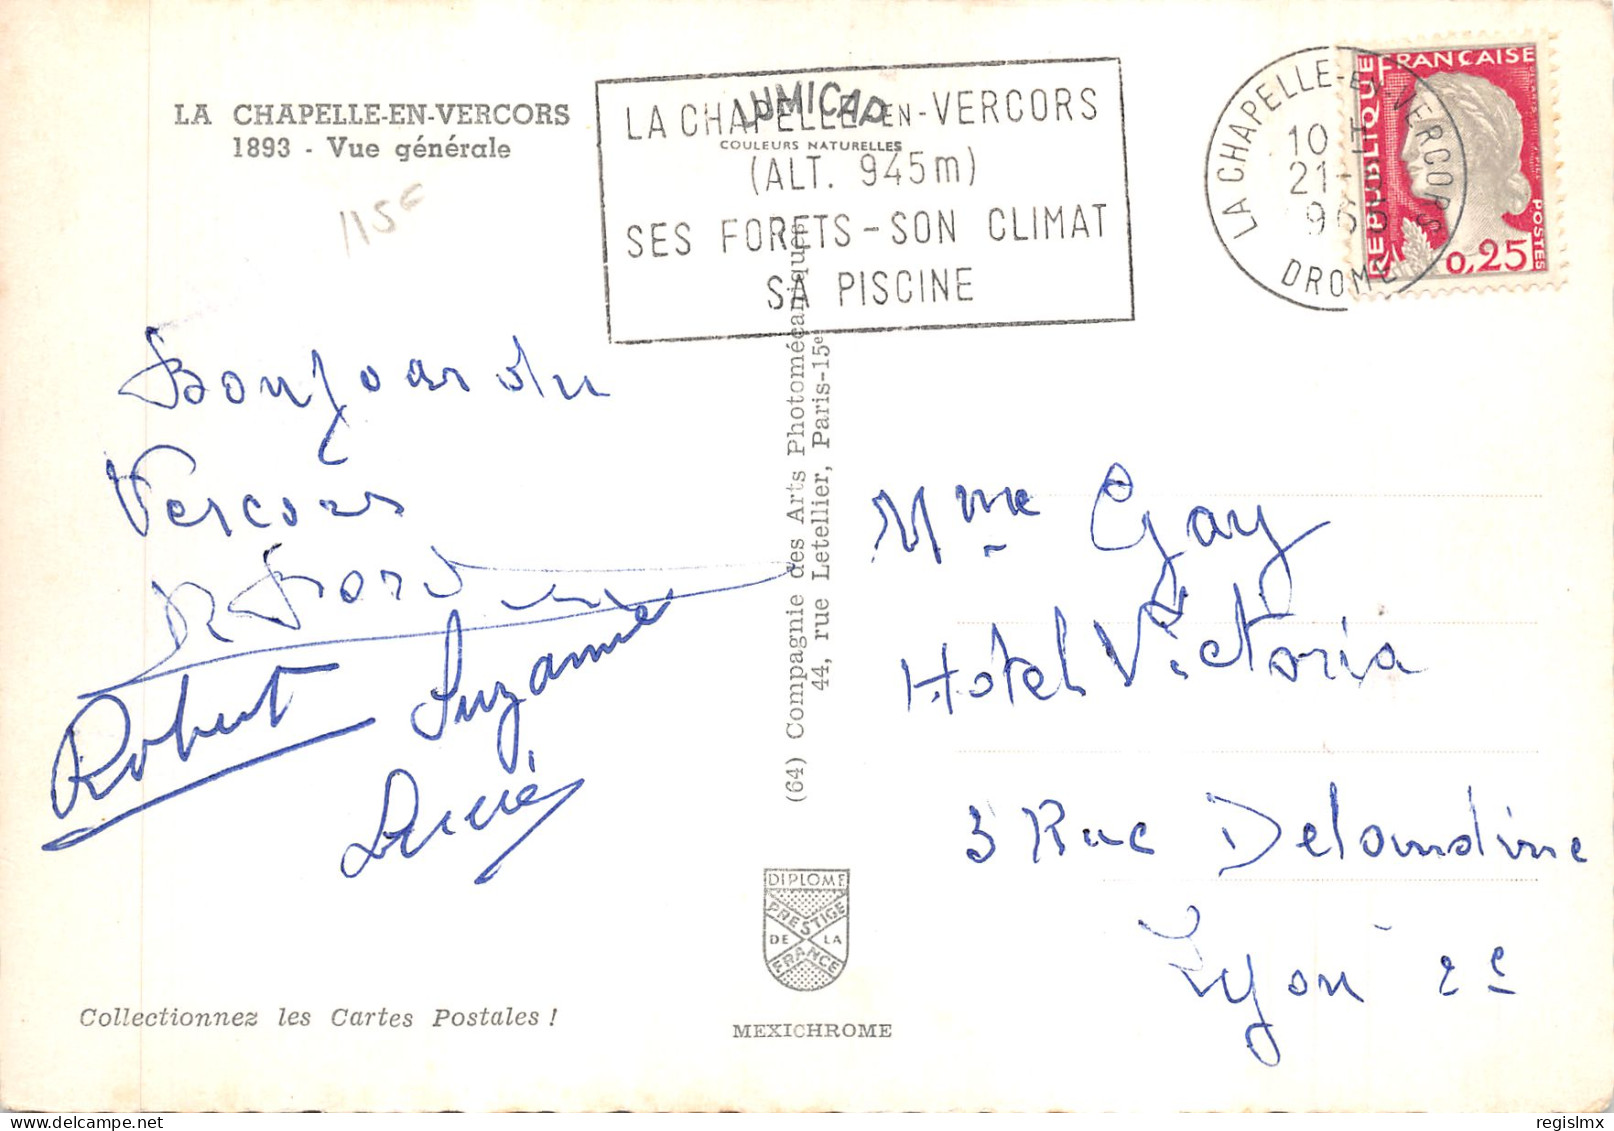 LA CHAPELLE-EN-VERCORS
1893 - Vue générale
115F
LUMICAP
COULEURS NATURELLES
LA CHAPELLE-EN-VERCORS
(ALT. 945m)
SES FORETS-SON CLIMAT
SA PISCINE
LA CHAPELLE-EN-VERCORS
10 H
21-
DROME
RÉPUBLIQUE FRANÇAISE
POSTES
0,25
Bonjour du
Vercors
Robert Suzanne
Lucie
(64) Compagnie des Arts Photomécaniques
44, rue Letellier, Paris-15e
Mme Gay
Hotel Victoria
3 Rue Delandine
Lyon 2e
DIPLOME
PRESTIGE
DE LA
FRANCE
Collectionnez les Cartes Postales !
MEXICHROME
www.delcampe.net
regislmx